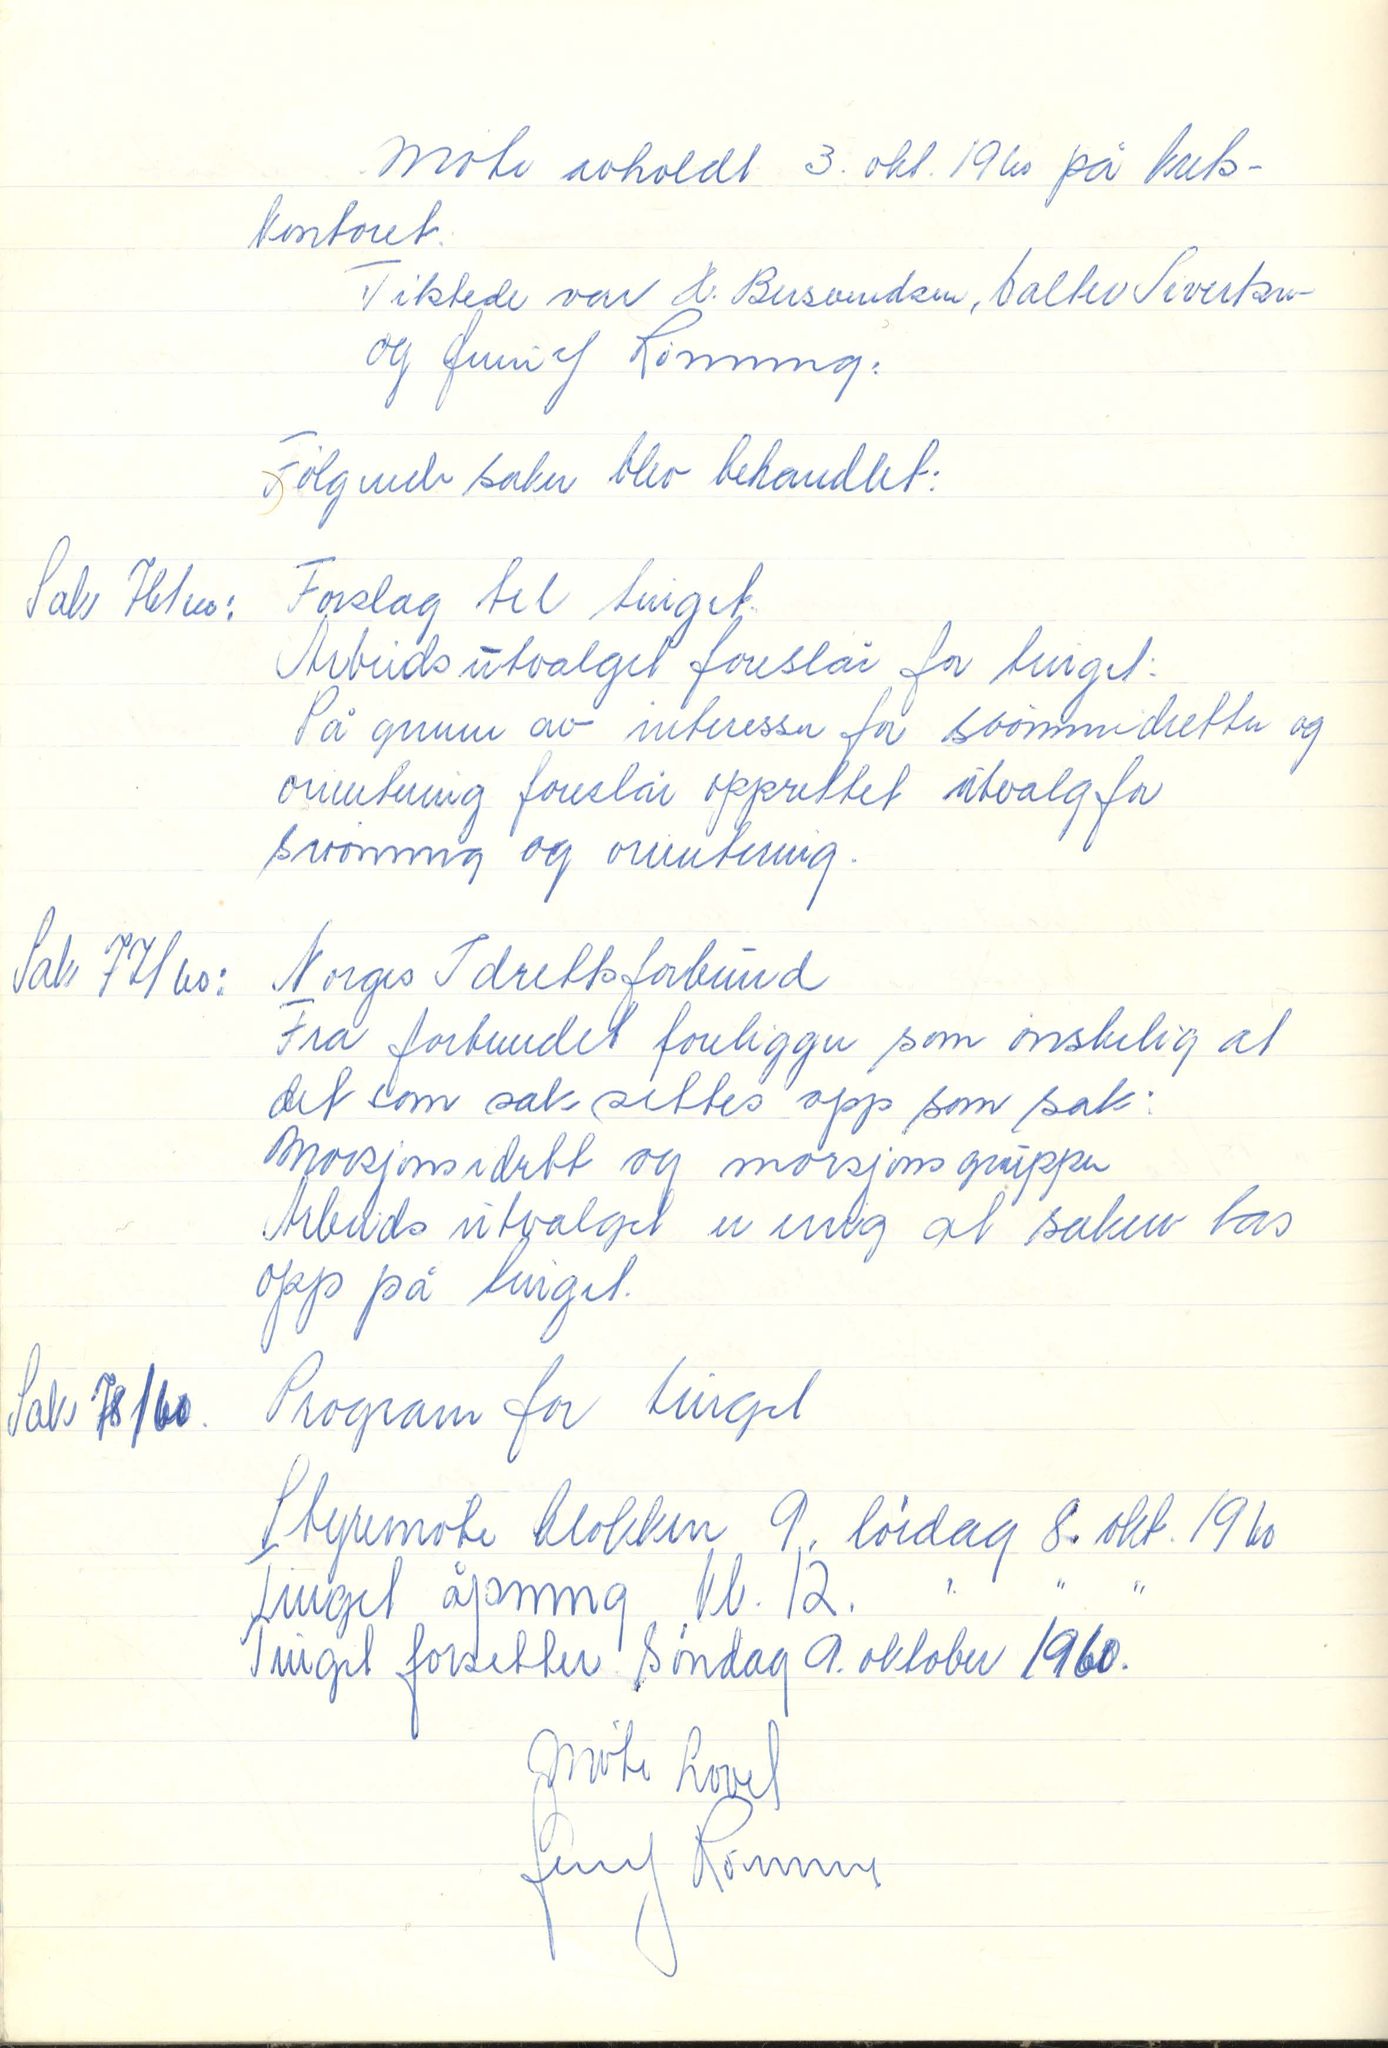 Møte avholdt 3. okt. 1960 på krets-
kontoret.
Tilstede var H. Berseundsen, Valter Sivertsen
og Jenny Rönning.
Følgende saker blev behandlet:
Sak 76/60: Forslag til tinget.
Arbeidsutvalget foreslår for tinget:
På grunn av interessen for svömmeidretten og
orientering foreslår opprettet utvalg for
svömming og orientering.
Sak 77/60: Norges Idrettsforbund
Fra forbundet foreligger som önskelig at
det som sak settes opp som sak:
Mosjonsidrett og mosjonsgrupper
Arbeidsutvalget er enig at saken tas
opp på tinget.
Sak 78/60. Program for tinget
Styremöte klokken 9. lördag 8. okt. 1960
Tinget åpning kl. 12. " " "
Tinget forsetter söndag 9. oktober 1960.
Möte hevet
Jenny Rönning